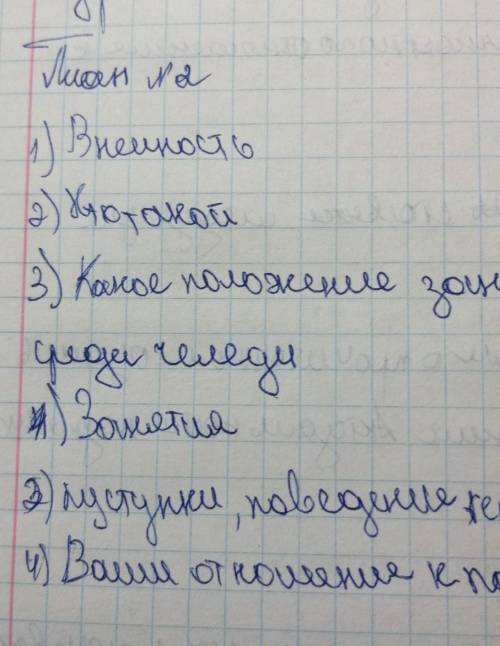 План №2
1) Внешность
2) Кто такой
3) Какое положение зан
среди челеди
4) Занятия
3) пуступки, поведение
4) Ваши отношения к по